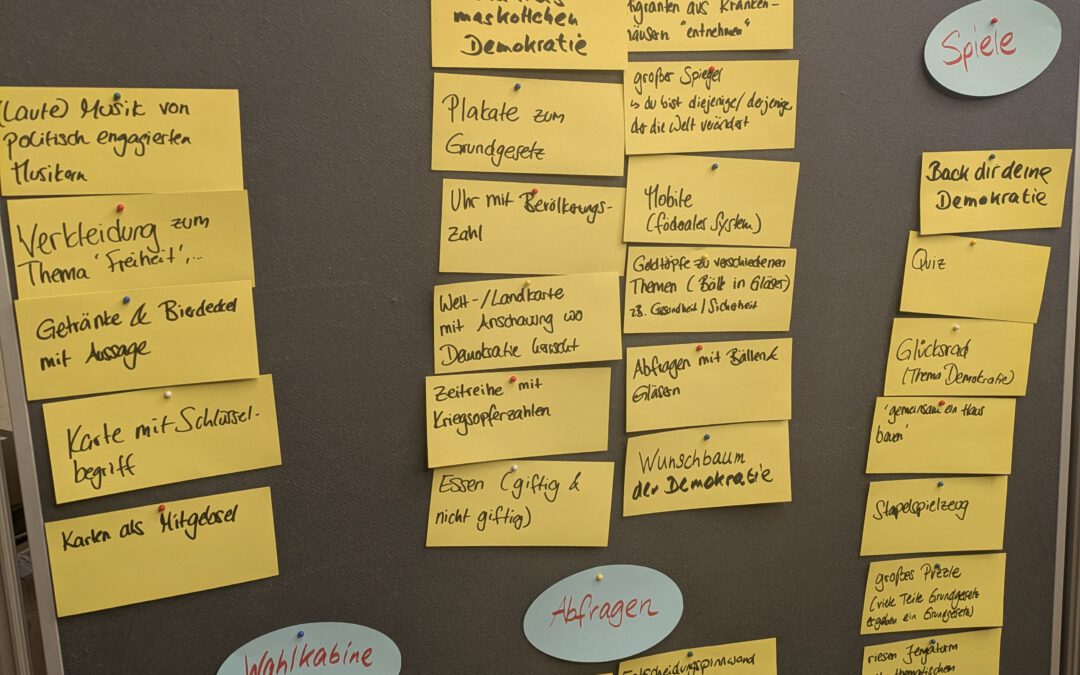 (Laute) Musik von
politisch engagierten
Musikern
Verkleidung zum
Thema 'Freiheit',...
Getränke & Bierdeckel
mit Aussage
Karte mit Schlüssel-
begriff
Karten als Mitgebsel
Wahlkabine
maskottchen
Demokratie
Plakate zum
Grundgesetz
Uhr mit Bevölkerungs-
zahl
Welt-/Landkarte
mit Anschauung wo
Demokratie herrscht
Zeitreihe mit
Kriegsopferzahlen
Essen (giftig &
nicht giftig)
Abfragen
aus Kranken-
häusern "entnehmen"
großer Spiegel
↳ du bist diejenige/derjenige
der die Welt verändert
Mobile
(föderales System)
Goldtöpfe zu verschiedenen
Themen (Bälle in Gläser)
z.B. Gesundheit/Sicherheit
Abfragen mit Bällen &
Gläsern
Wunschbaum
der Demokratie
Entscheidungspinnwand
Spiele
Back dir deine
Demokratie
Quiz
Glücksrad
(Thema Demokratie)
'gemeinsam ein Haus
bauen'
Stapelspielzeug
großes Puzzle
(viele Teile Grundgesetz
ergeben ein Grundgesetz)
riesen Jengaturm
thematischen